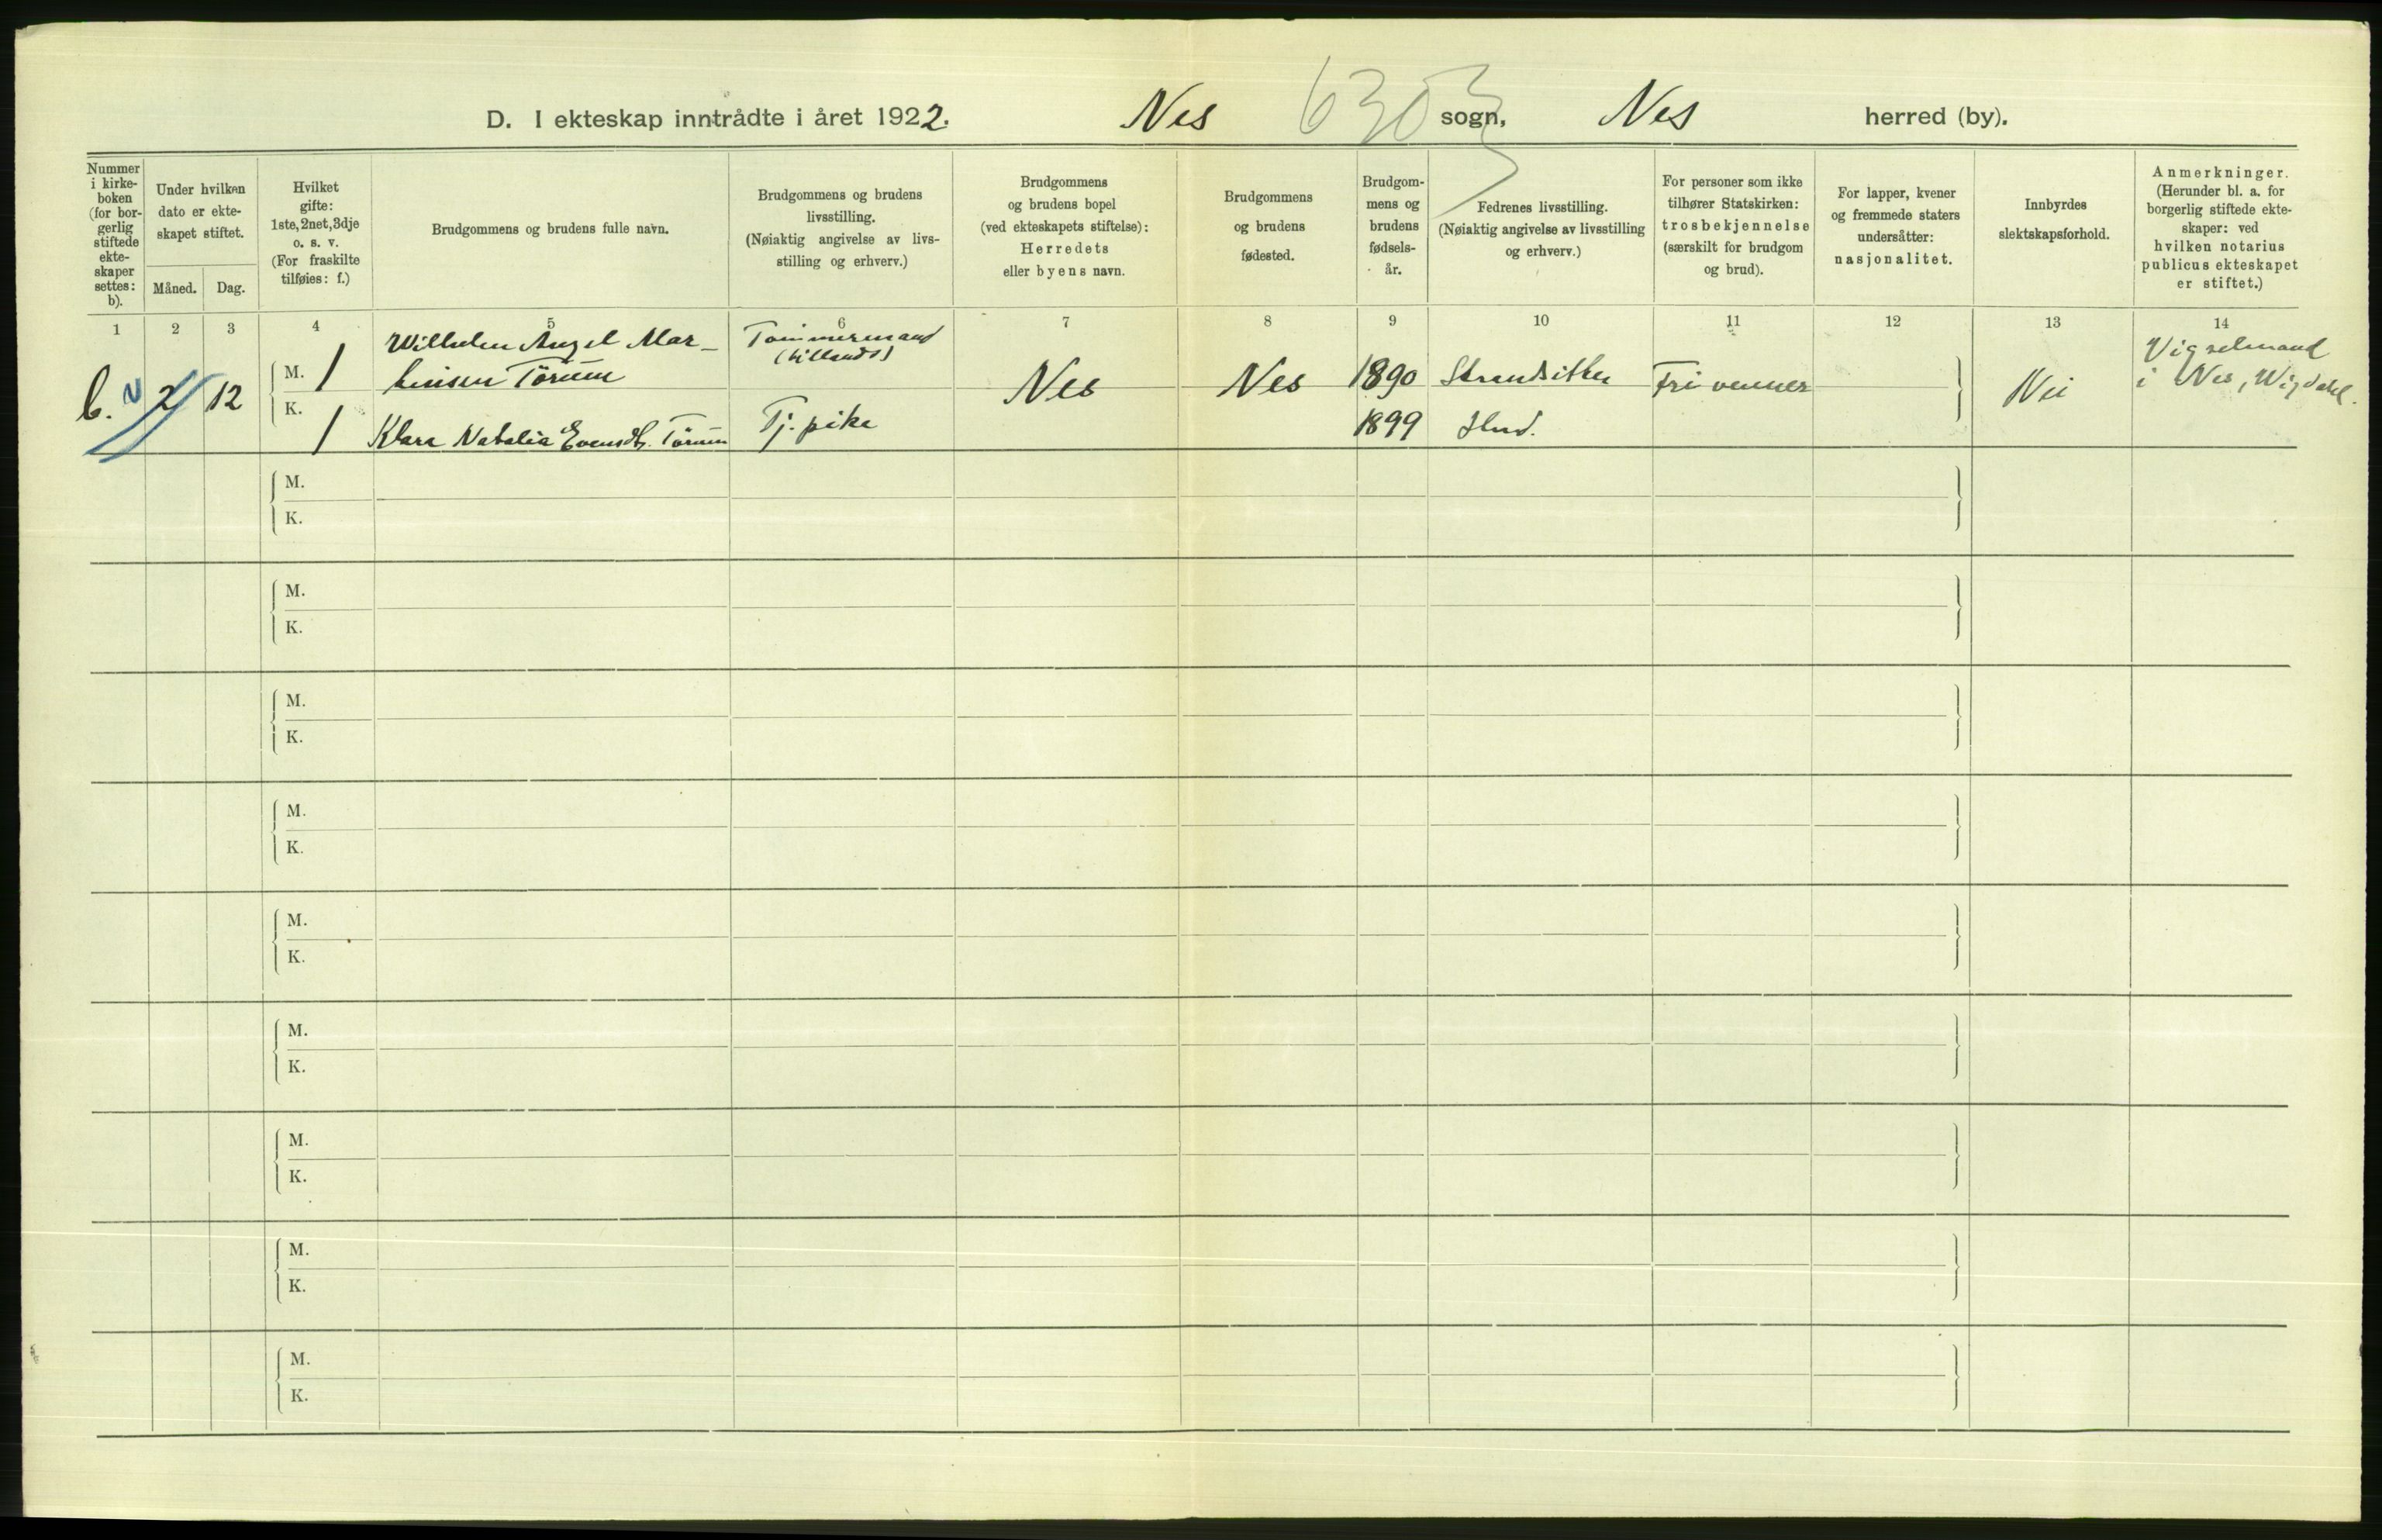 D. I ekteskap inntrådte i året 1922. Nes sogn, Nes herred (by).
6303
Nummer
i kirke-
boken
(for bor-
gerlig
stiftede
ekte-
skaper
settes:
b).
Under hvilken
dato er ekte-
skapet stiftet.
Måned. Dag.
Hvilket
gifte:
1ste, 2net, 3dje
o. s. v.
(For fraskilte
tilføies: f.)
Brudgommens og brudens fulle navn.
Brudgommens og brudens
livsstilling.
(Nøiaktig angivelse av livs-
stilling og erhverv.)
Brudgommens
og brudens bopel
(ved ekteskapets stiftelse):
Herredets
eller byens navn.
Brudgommens
og brudens
fødested.
Brudgom-
mens og
brudens
fødsels-
år.
Fedrenes livsstilling.
(Nøiaktig angivelse av livsstilling
og erhverv.)
For personer som ikke
tilhører Statskirken:
trosbekjennelse
(særskilt for brudgom
og brud).
For lapper, kvener
og fremmede staters
undersåtter:
nasjonalitet.
Innbyrdes
slektskapsforhold.
Anmerkninger.
(Herunder bl. a. for
borgerlig stiftede ekte-
skaper: ved
hvilken notarius
publicus ekteskapet
er stiftet.)
1 2 3 4 5 6 7 8 9 10 11 12 13 14
b. 2 12
M. 1
K. 1
Wilhelm Angel Mar-
tinsen Törum
Klara Natalia Evensdt. Törum
Tømmermand
Tj. pike
Nes
Nes
1890
1899
Strandsitter
Grd.
Fri venner
Nei
Vigselmand
i Nes, Wigdahl.
M.
K.
M.
K.
M.
K.
M.
K.
M.
K.
M.
K.
M.
K.
M.
K.
M.
K.